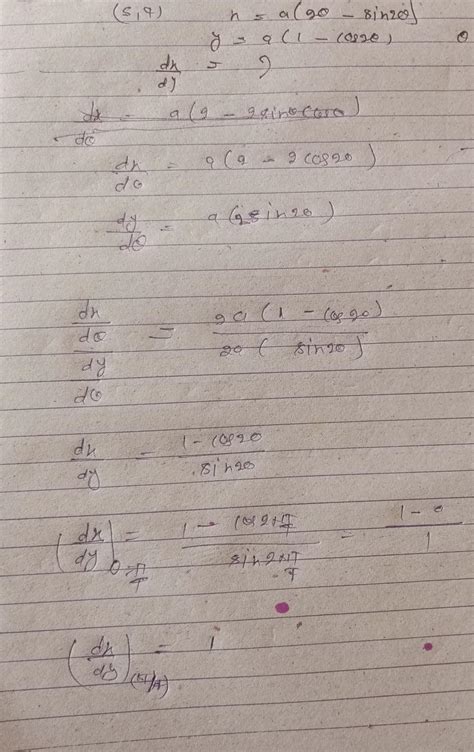 (5,4) x = a(2θ - sin2θ)
y = a(1 - cos2θ) θ
dx/dy = ?
dx/dθ = a(2 - 2sinθcosθ)
dx/dθ = a(2 - 2cos2θ)
dy/dθ = a(2sin2θ)
(dx/dθ)/(dy/dθ) = 2a(1 - cos2θ)/2a(sin2θ)
dx/dy = 1-cos2θ/sin2θ
(dx/dy)θ=π/4 = 1 - cos2×π/4/sin2×π/4 = 1-0/1
(dx/dy)(π/4) = 1